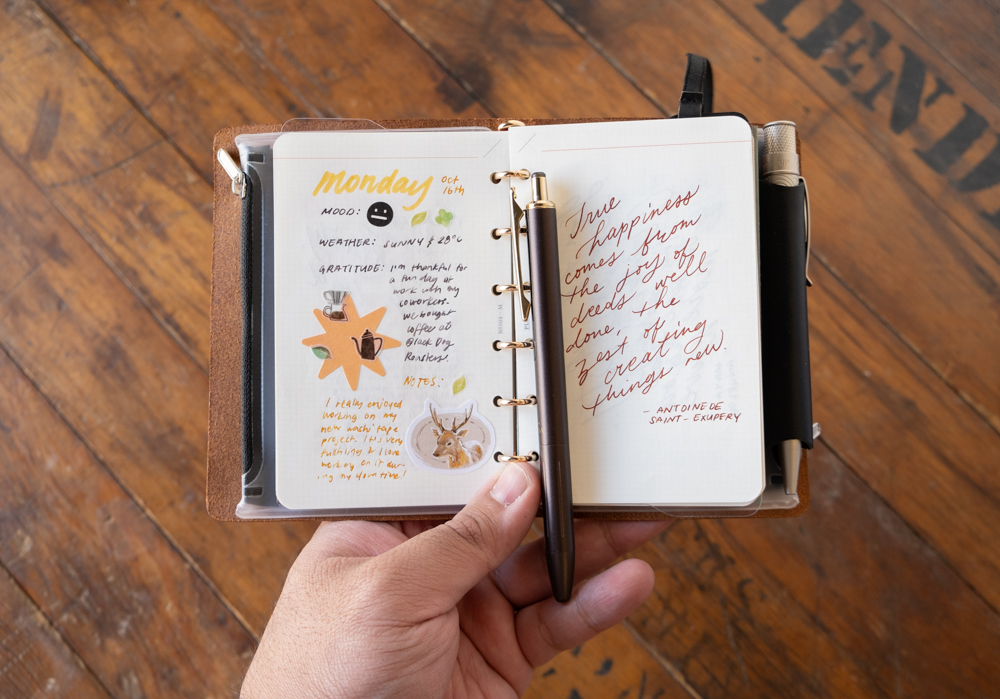 monday
Oct
16th
MOOD:
WEATHER: SUNNY & 28°C
GRATITUDE: I'm thankful for
a fun day at
work with my
coworkers.
We bought
coffee at
Black Dog
Roasters.
NOTES:
I really enjoyed
working on my
new washi tape
project. It's very
& I love
working on it dur-
ing my down time!
True
happiness
comes from
the joy of
deeds well
done, the
zest of
creating
things new.
- ANTOINE DE
SAINT-EXUPERY
LEND